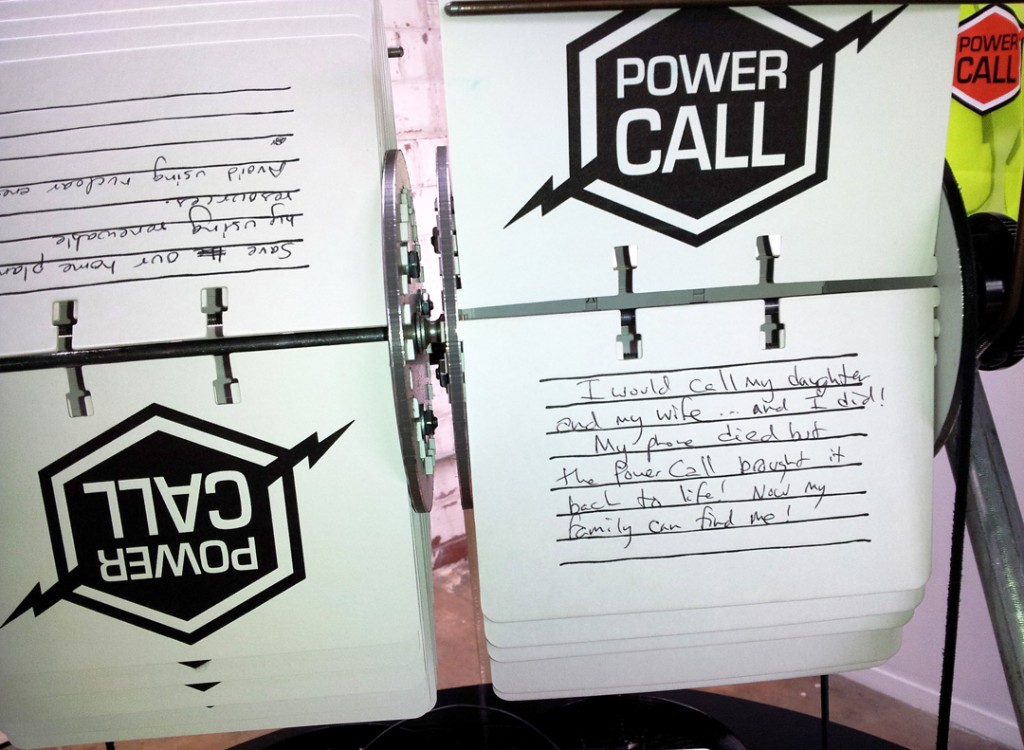 Save our home plan
by using renewable
resources.
Avoid using nuclear ene
POWER
CALL
POWER
CALL
I would call my daughter
and my wife ... and I did!
My phone died but
the Power Call brought it
back to life! Now my
family can find me!
POWER
CALL